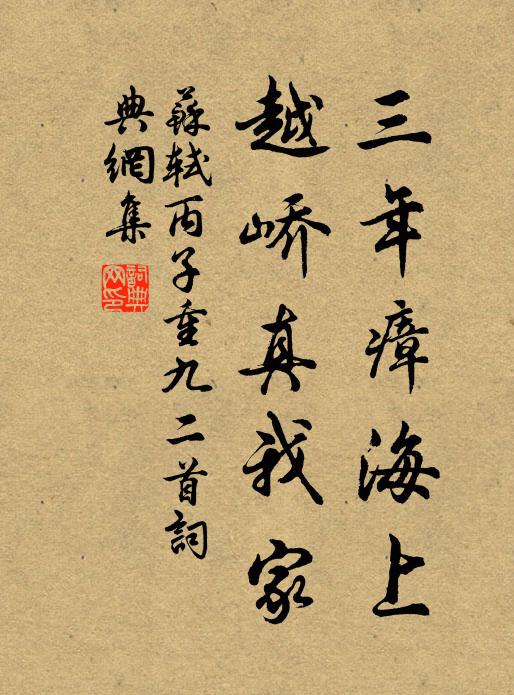 三年瘴海上
越峤真我家
蘇軾丙子重九二首詞
典網集
詞典网印